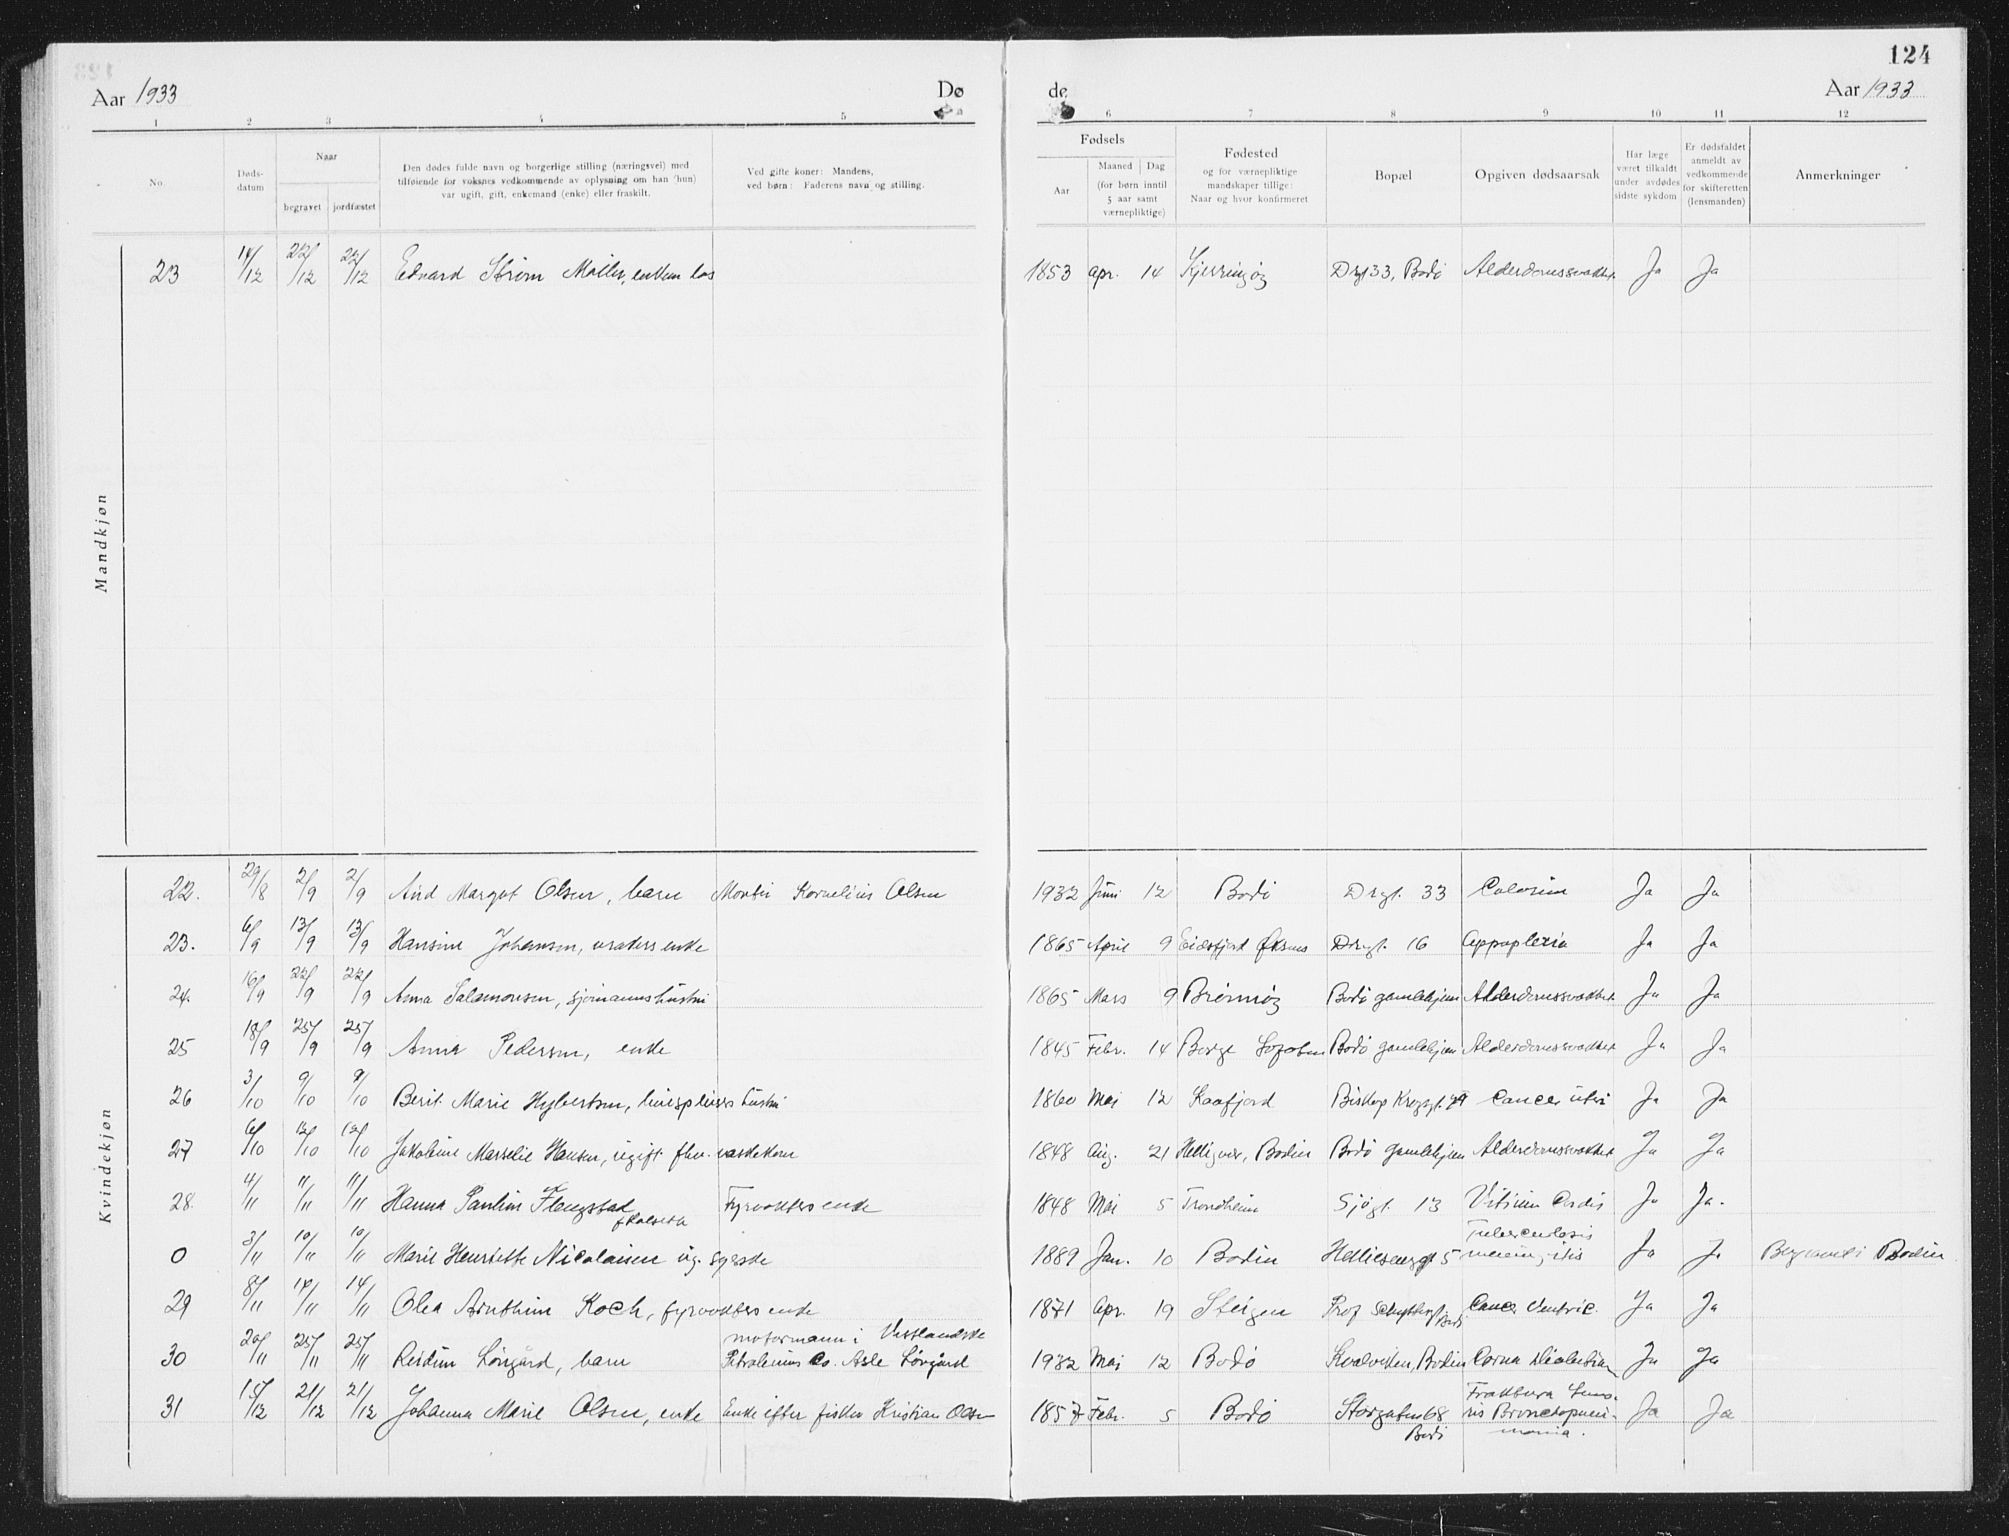 124
Aar 1933 Dø de Aar 1933
1 2 3 4 5 6 7 8 9 10 11 12
No. Døds-datum Naar begravet jordfæstet
Den dødes fulde navn og borgerlige stilling (næringsvei) med
tilføiende for voksnes vedkommende av oplysning om han (hun)
var ugift, gift, enkemand (enke) eller fraskilt.
Ved gifte koner: Mandens,
ved børn: Faderens navn og stilling.
Fødsels
Aar Maaned Dag
(for børn inntil
5 aar samt
værnepliktige)
Fødested
og for værnepliktige
mandskaper tillige:
Naar og hvor konfirmeret
Bopæl
Opgiven dødsaarsak
Har læge
været tilkaldt
under avdødes
sidste sykdom
Er dødsfaldet
anmeldt av
vedkommende
for skifteretten
(lensmanden)
Anmerkninger
Mandkjøn
23 14/12 22/12 22/12 Edvard Strøm 1853 apr. 14 Kjerringøy Drgt 33, Bodø Alderdomssvakhet Ja Ja
Kvindekjøn
22. 29/8 2/9 2/9 Aud Margot Olsen, barn Montør Kornelius Olsen 1932 Juni 12 Bodø Drgt. 33 Ja Ja
23. 6/9 13/9 13/9 Hansine Johansen, enke 1865 April 9 Eidsfjord Øksnes Drgt. 16 Appoplexia Ja Ja
24. 16/9 22/9 22/9 Anna Salamonsen, sjømanns hustru 1865 Mars 9 Brønnøy Bodø gamlehjem Alderdomssvakhet Ja Ja
25 18/9 25/9 25/9 Anna Pedersen, enke 1845 Febr. 14 Borge Lofoten Bodø gamlehjem Alderdomssvakhet Ja Ja
26 3/10 9/10 9/10 Berit Marie Hybertsen, hustru 1860 Mai 12 Kaafjord Biskop Krogsgt. Cancer uteri Ja Ja
27 6/10 12/10 12/10 Jakobine Marselie Hansen, ugift fhv. vaskekone 1848 Aug. 21 Helligvær, Bodin Bodø gamlehjem Alderdomssvakhet Ja Ja
28. 4/11 11/11 11/11 Hanna Pauline Flengstad Fyrvokters enke 1848 Mai 5 Trondheim Sjøgt. 13 Vitium Cordis Ja Ja.
0 3/11 10/11 10/11 Marie Henriette Nicolaisen ug. syerske 1889 Jan. 10 Bodin 5 Tuberculosis
meningitis Ja Ja Begravet i Bodin
29 8/11 14/11 14/11 Olea Koch, fyrvokters enke 1871 Apr. 19 Steigen Prof Schyttesgt. Bodø Cancer Ventric. Ja Ja
30 20/11 25/11 25/11 Reidun Løvgård, barn motormann i Vestlandske
Petroleums Co. Asle Løvgård 1932 Mai 12 Bodø Kvalvikken, Bodin Coma diabeticum Ja Ja
31 15/12 21/12 21/12 Johanna Marie Olsen, enke Enke efter fisker Kristian Olsen 1857 Febr. 5 Bodø Storgaten 68
Bodø Fraktura femo-
ris Bronchopneu-
monia. Ja Ja